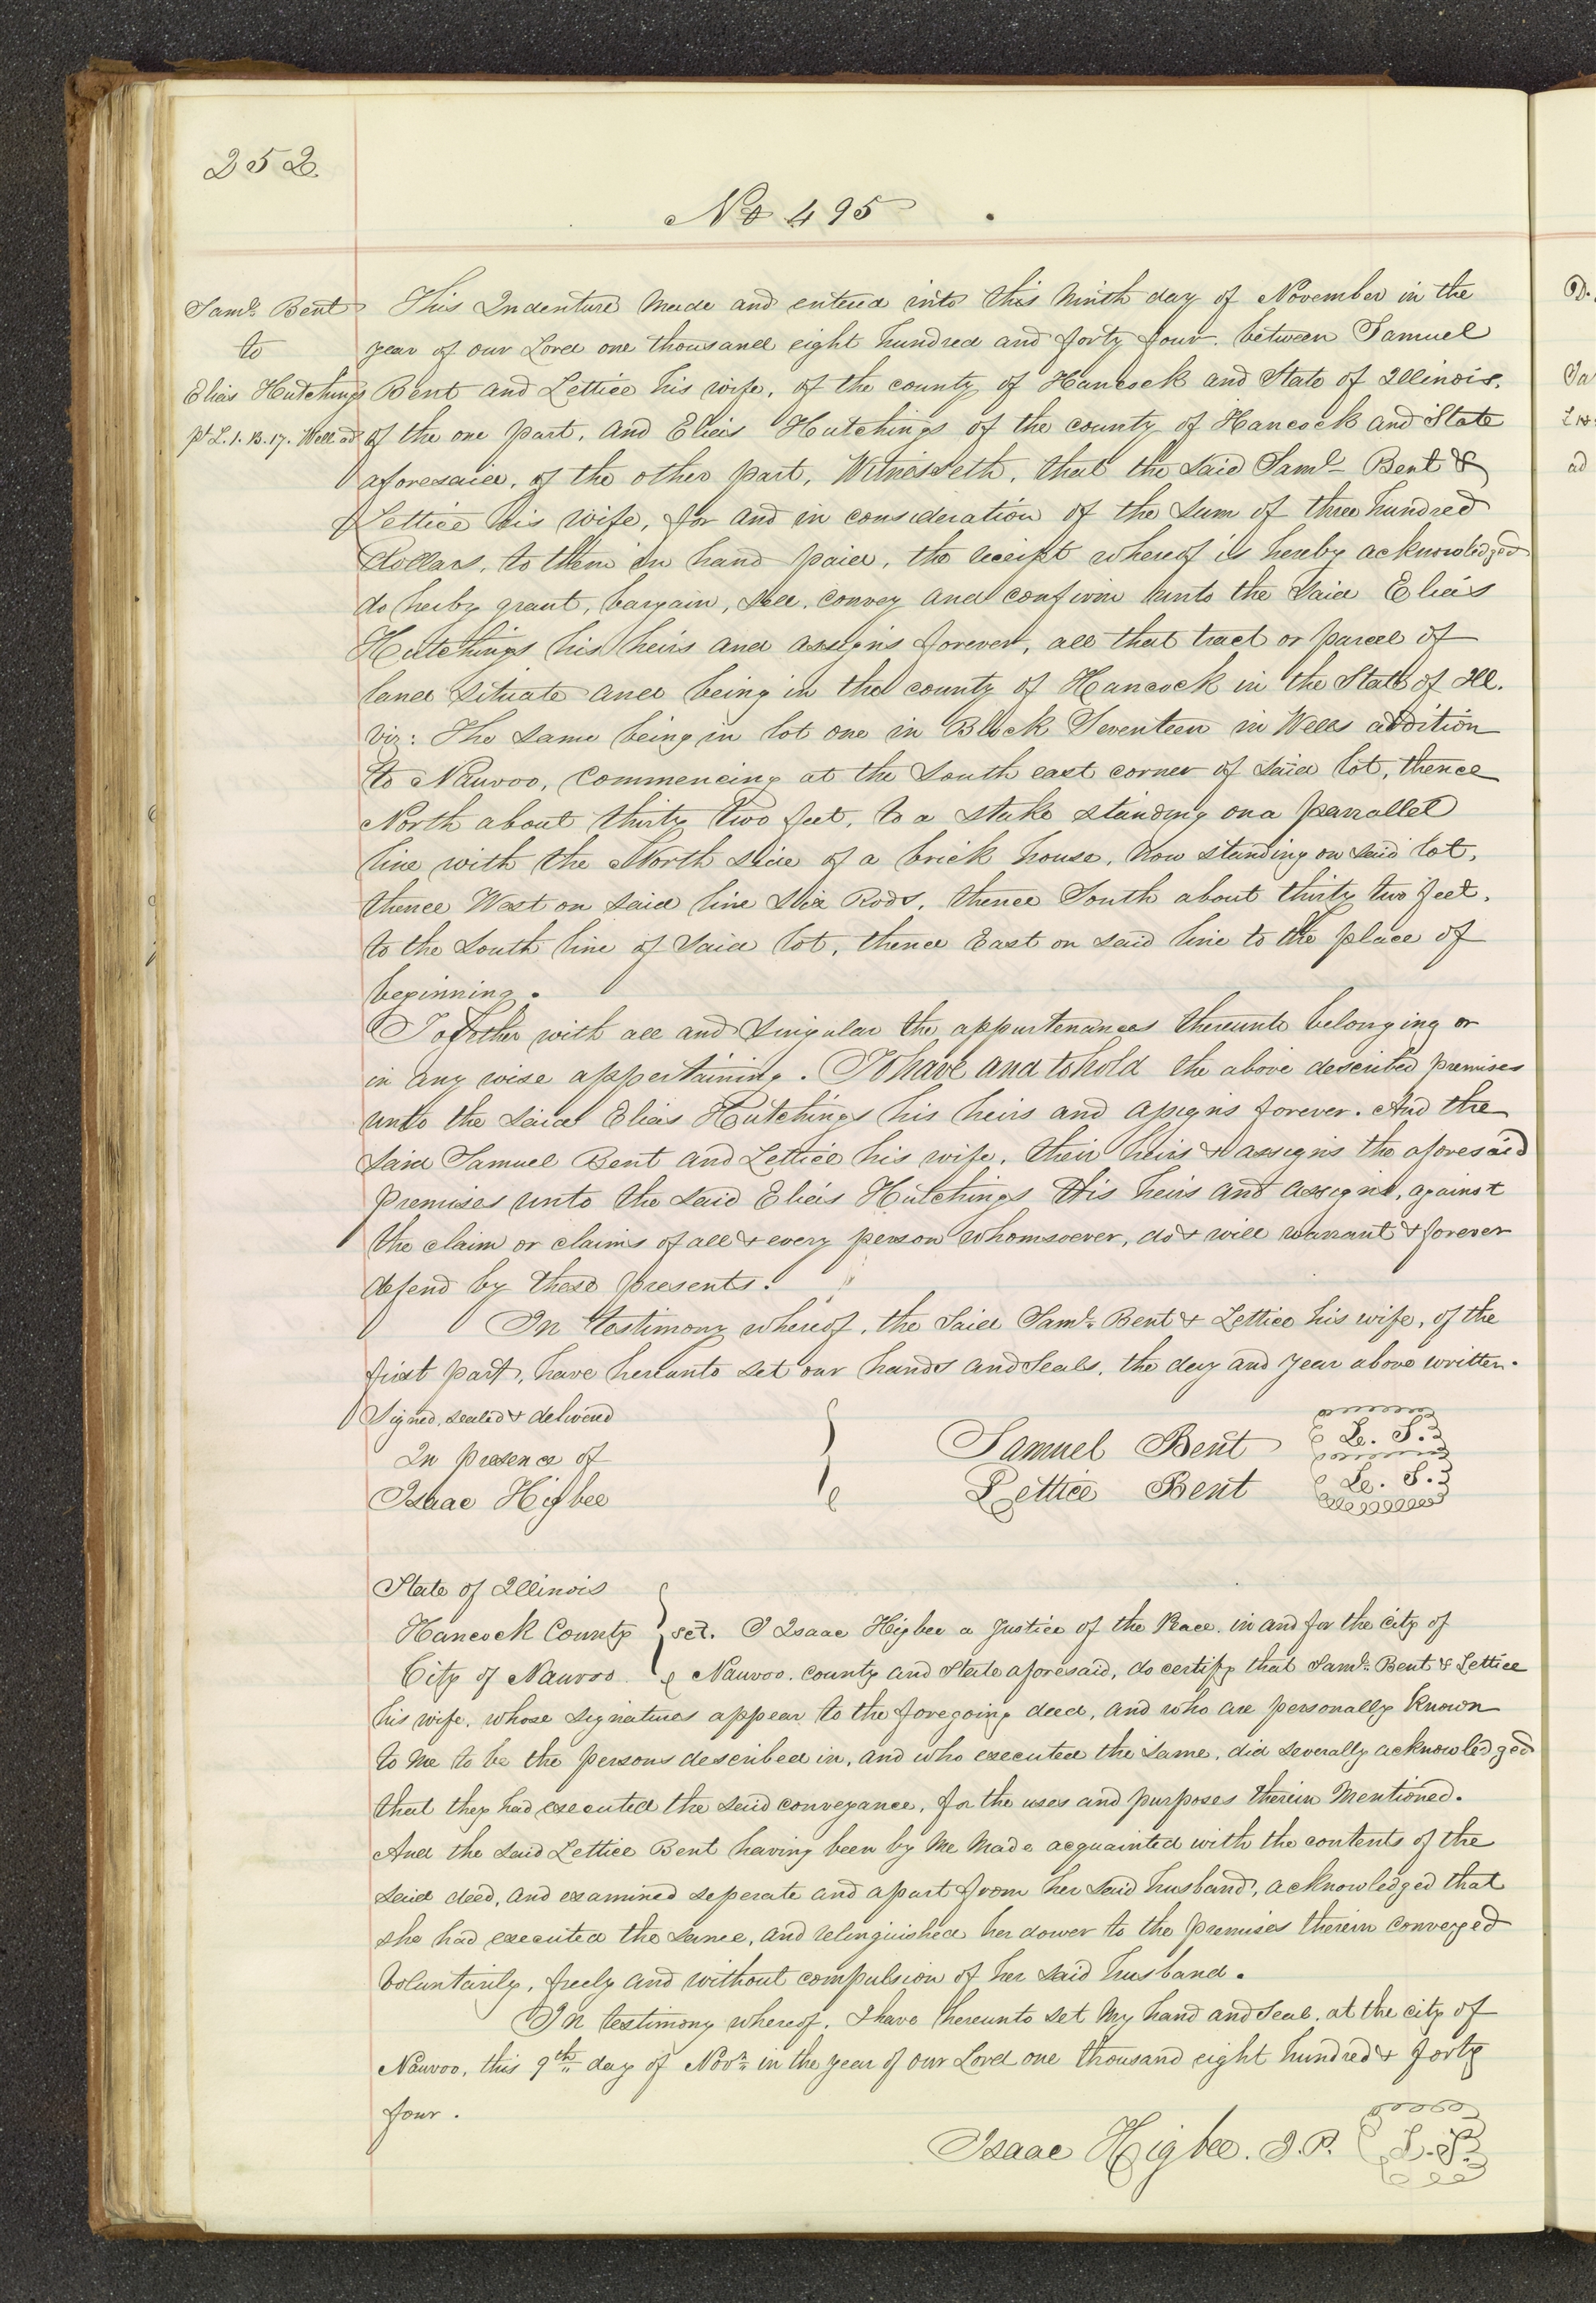 252
No 495
Saml. Bent
to
Elias Hutchings
pt L. 1. B. 17. Wells ad
This Indenture Made and entered into this Ninth day of November in the
year of our Lord one thousand eight hundred and forty four. between Samuel
Bent and Lettice his wife, of the county of Hancock and State of Illinois.
of the one part, and Elias Hutchings of the county of Hancock and State
aforesaid, of the other part, Witnesseth, that the said Saml Bent &
Lettice his wife, for and in consideration of the sum of three hundred
Dollars, to them in hand paid, the receipt whereof is hereby acknowledged
do herby grant, bargain, sell, convey and confirm unto the said Elias
Hutchings his heirs and assigns forever, all that tract or parcel of
land situate and being in the county of Hancock in the State of Ill.
viz: The same being in lot one in Block Seventeen in Wells addition
to Nauvoo, Commencing at the South east corner of said lot, thence
North about thirty two feet, to a stake standing on a parrallel
line with the North side of a brick house, now standing on said lot,
thence West on said line six Rods, thence South about thirty two feet,
to the south line of said lot, thence East on said line to the place of
beginning.
Together with all and singular the appurtenances thereunto belonging or
in any wise appertaining. To have and to hold the above described premises
unto the said Elias Hutchings his heirs and assigns forever. And the
said Samuel Bent and Lettice his wife, their heirs & assigns the aforesaid
premises unto the said Elias Hutchings His heirs and assigns, against
the claim or claims of all & every person whomsoever, do & will warrant & forever
defend by these presents.
In testimony whereof, the said Saml. Bent & Lettice his wife, of the
first part, have hereunto set our hands and Seals, the day and year above written.
Signed, sealed & delivered
In presence of
Isaac Higbee
Samuel Bent L. S.
Lettice Bent L. S.
State of Illinois
Hancock County sct. I Isaac Higbee a Justice of the Peace, in and for the city of
City of Nauvoo Nauvoo, county and State aforesaid, do certify that Saml. Bent & Lettice
his wife, whose signatures appear to the foregoing deed, and who are personally Known
to me to be the persons described in, and who executed the same, did severally acknowledged
that they had executed the said conveyance, for the uses and purposes therein Mentioned.
And the said Lettice Bent having been by Me Made acquainted with the contents of the
said deed, and examined seperate and apart from her said husband, acknowledged that
she had executed the same, and relinquished her dower to the premises therein conveyed
Voluntarily, freely and without compulsion of her said husband.
In testimony whereof, I have hereunto set My hand and Seal, at the city of
Nauvoo, this 9th day of Novr. in the year of our Lord one thousand eight hundred & forty
four.
Isaac Higbee. J. P. L. S.